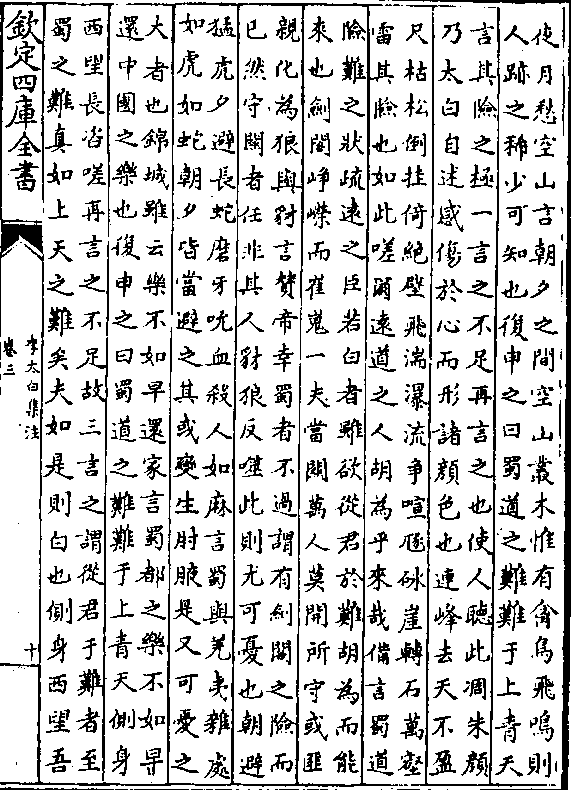 夜月愁空山言朝夕之間空山叢木惟有禽鳥飛鳴則
人跡之稀少可知也復申之曰蜀道之難難于上青天
言其險之極一言之不足再言之也使人聽此凋朱顏
乃太白自述感傷於心而形諸顏色也連峰去天不盈
尺枯松倒挂倚絶壁飛湍瀑流爭喧豗砯崖轉石萬壑
雷其險也如此嗟爾遠道之人胡為乎來哉備言蜀道
險難之狀疏遠之臣若白者雖欲從君於難胡為而能
來也劍閣崢嶸而崔嵬一夫當關萬人莫開所守或匪
親化為狼與豺言贊帝幸蜀者不過謂有劍閣之險而
已然守關者任非其人豺狼反噬此則尤可憂也朝避
猛虎夕避長蛇磨牙吮血殺人如麻言蜀與羌夷雜處
如虎如蛇朝夕皆當避之其或變生肘腋是又可憂之
大者也錦城雖云樂不如早還家言蜀都之樂不如早
還中國之樂也復申之曰蜀道之難難于上青天側身
西望長咨嗟再言之不足故三言之謂從君于難者至
蜀之難真如上天之難矣夫如是則白也側身西望吾
欽定四庫全書
李太白集注
卷三
十